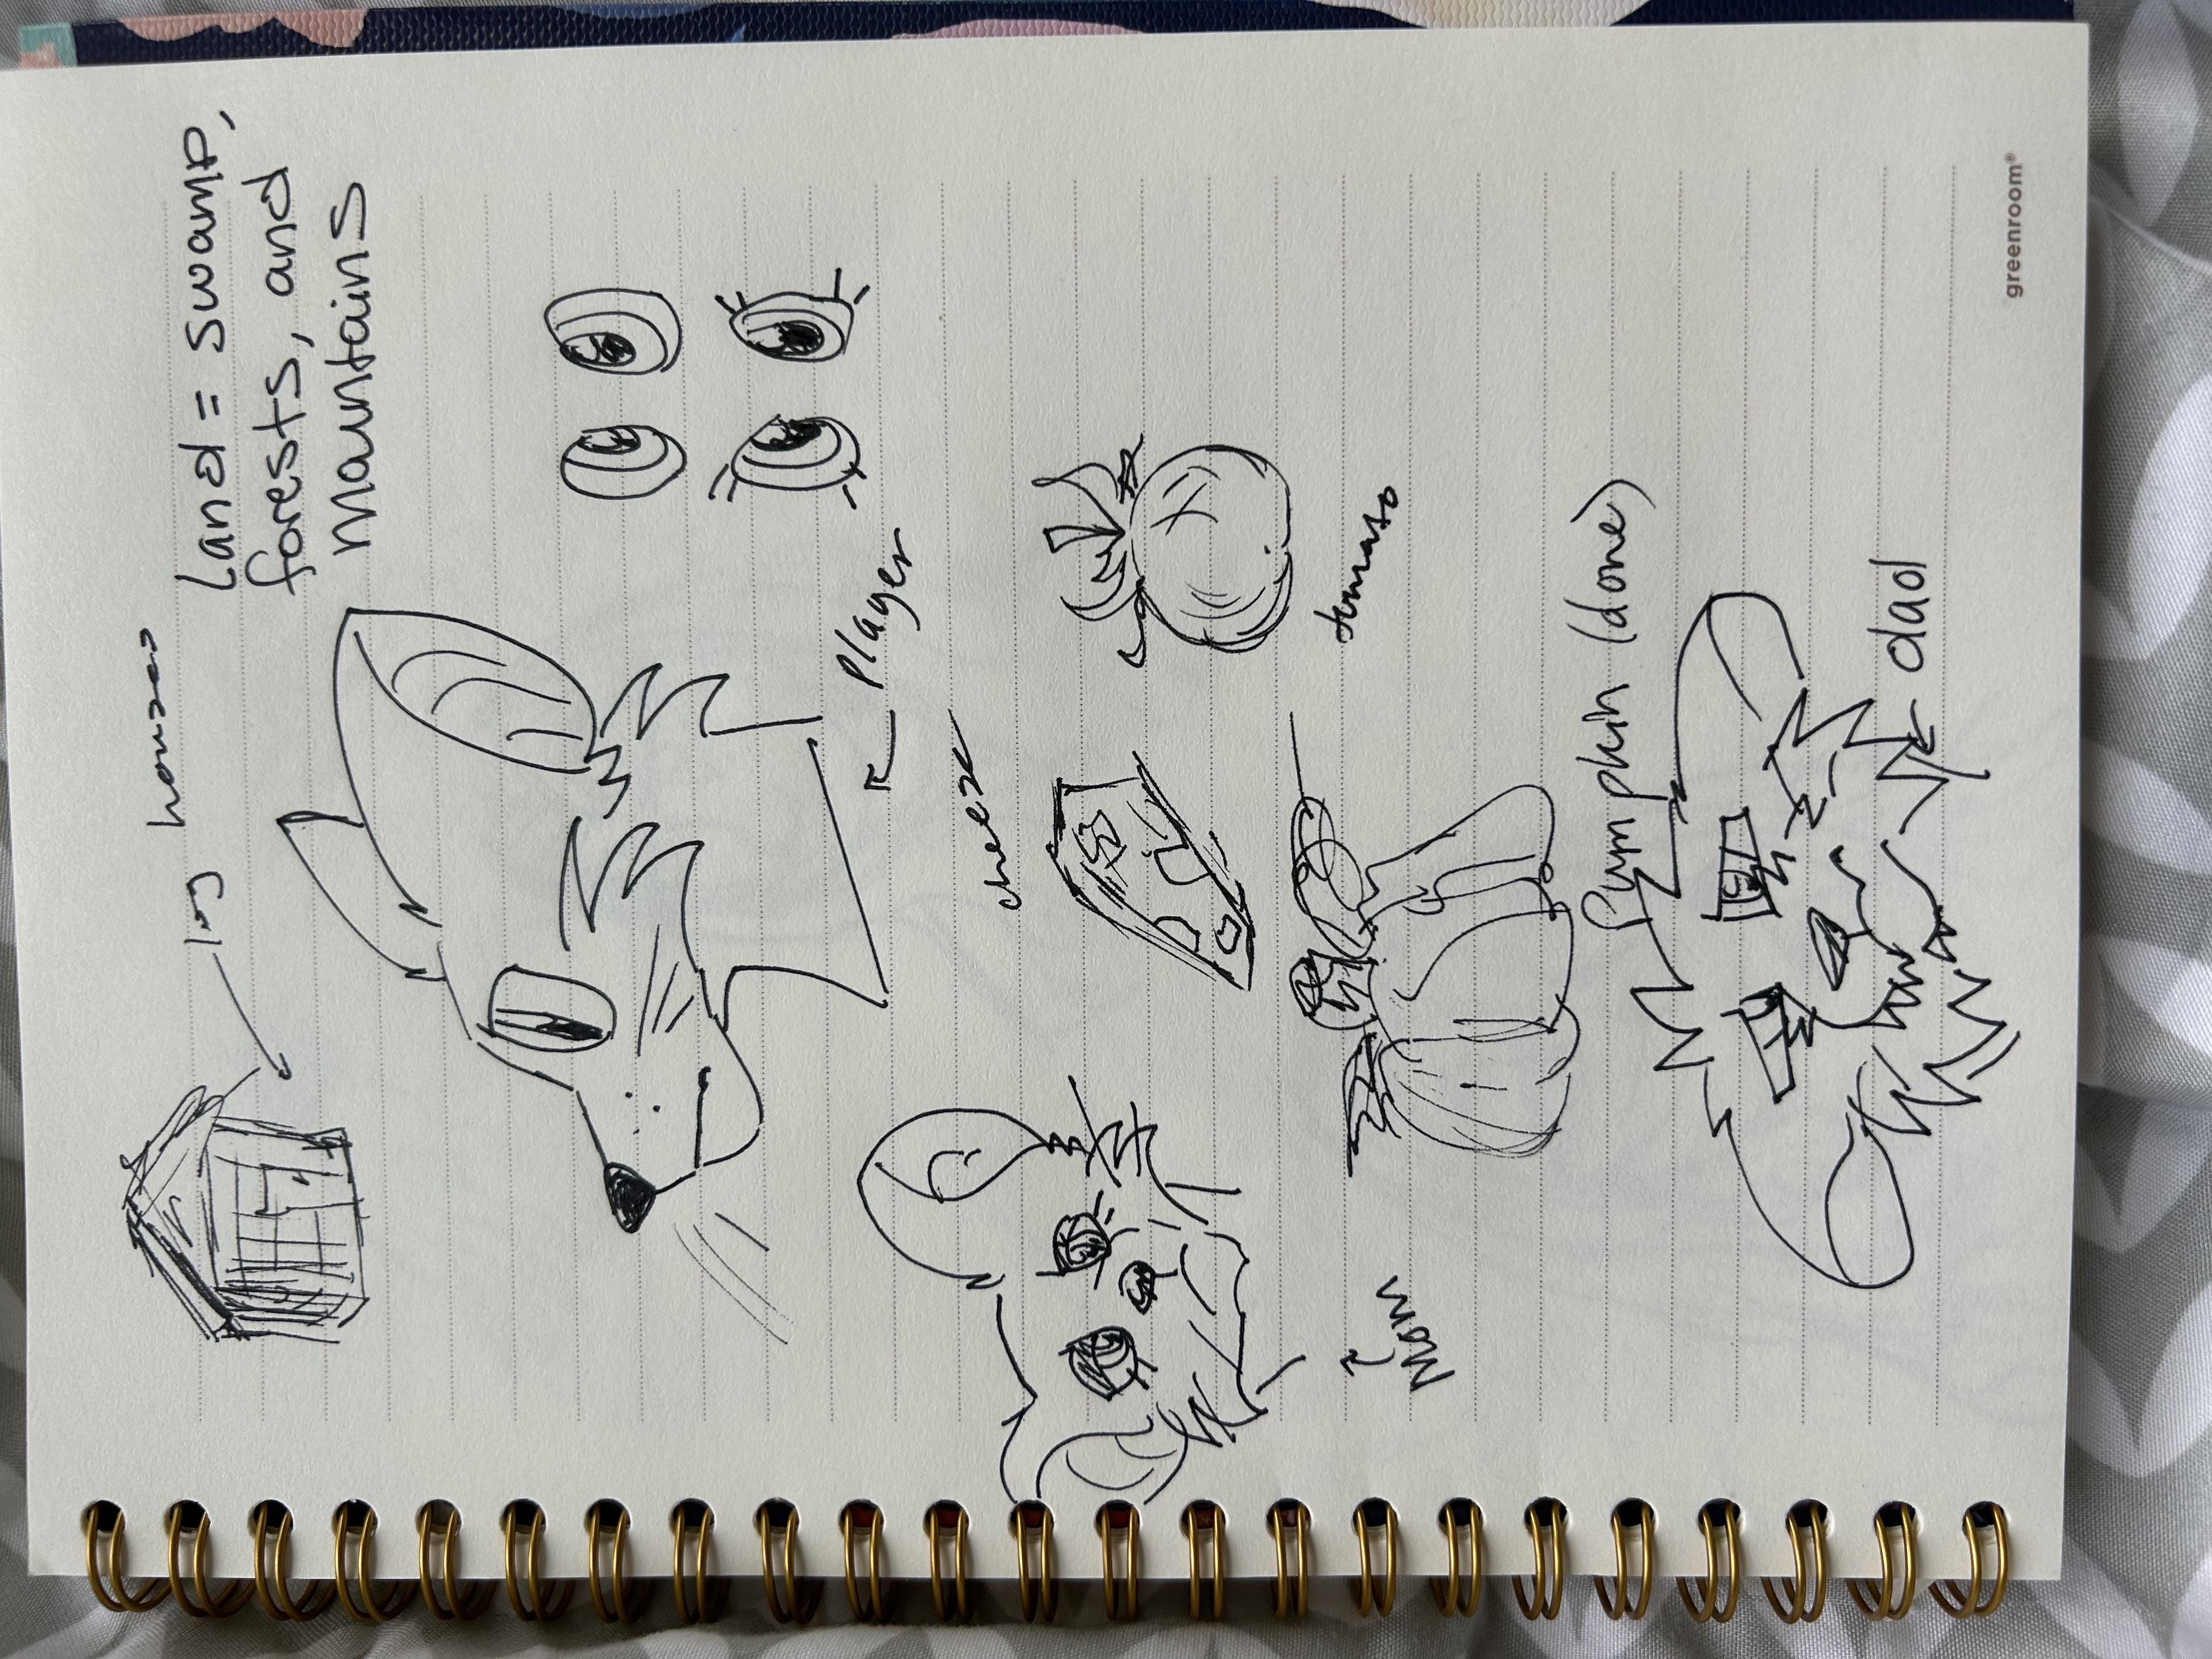 log houses
Land = swamp,
forests, and
mountains
Player
cheese
tomato
Mom
Pumpkin (done)
dad
greenroom®